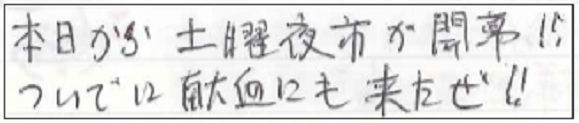 本日から 土曜夜市が開幕!!
ついでに献血にも来たぜ!!